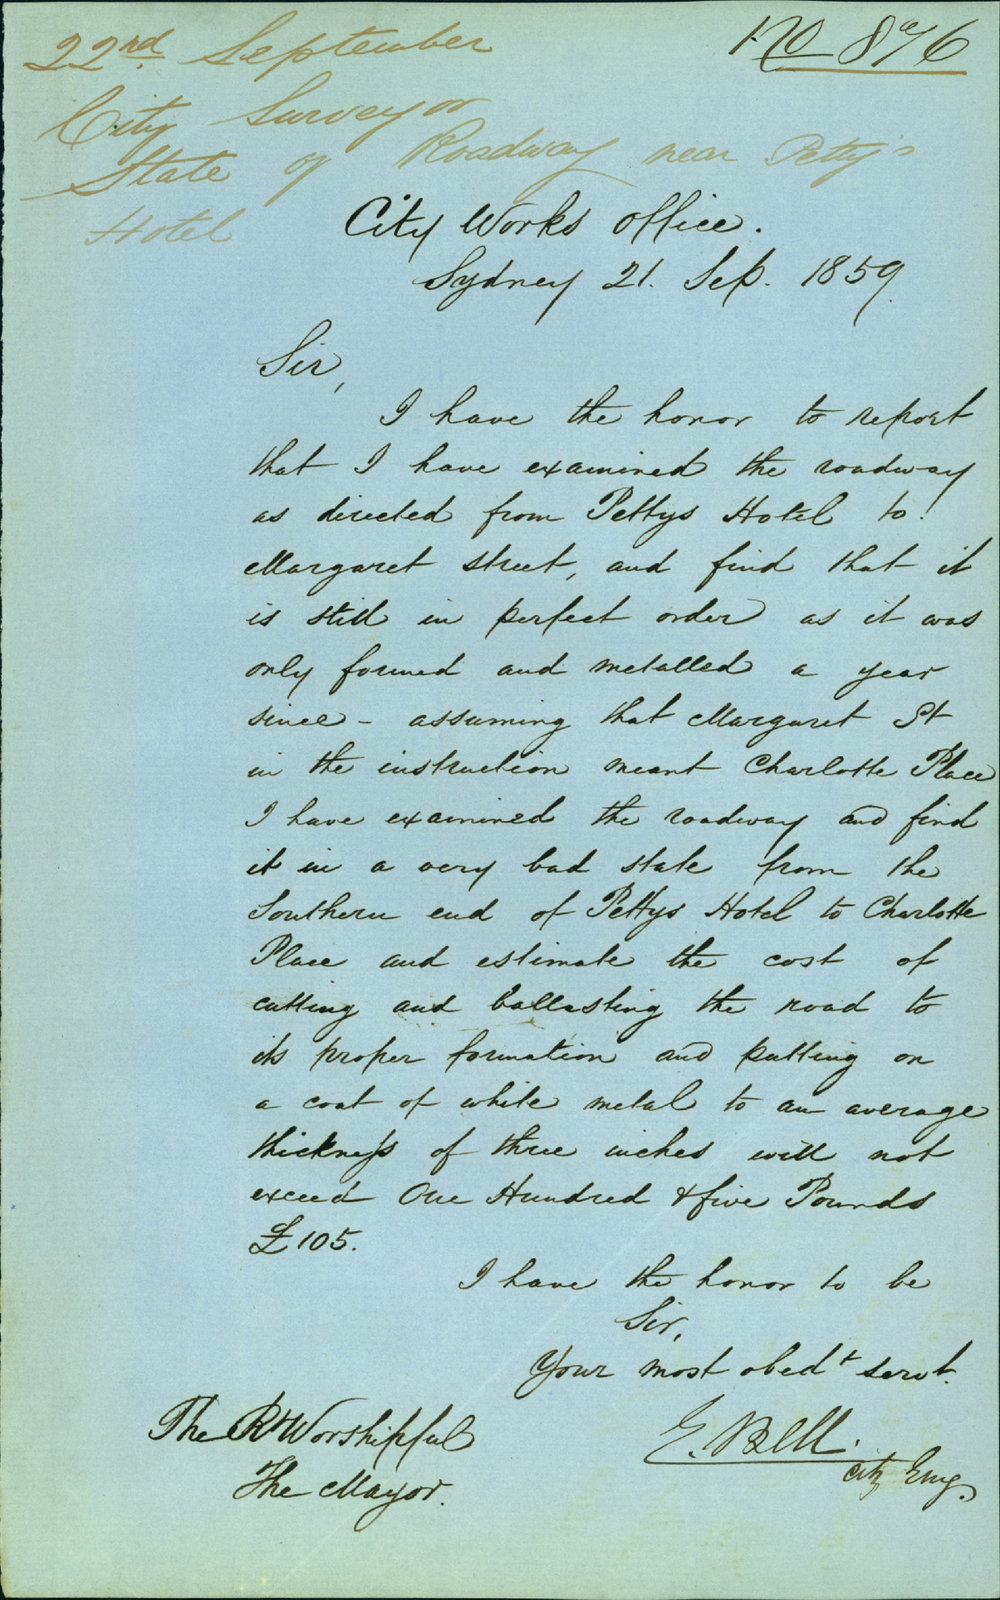 22nd. September
No 876
City Surveyor
State of Roadway near Petty's
Hotel
City Works Office.
Sydney 21. Sep. 1859.
Sir,
I have the honor to report
that I have examined the roadway
as directed from Pettys Hotel to
Margaret street, and find that it
is still in perfect order as it was
only formed and metalled a year
since - assuming that Margaret St
in the instruction meant Charlotte Place
I have examined the roadway and find
it in a very bad state from the
Southern end of Pettys Hotel to Charlotte
Place and estimate the cost of
cutting and ballasting the road to
its proper formation and putting on
a coat of white metal to an average
thickness of three inches will not
exceed One Hundred & five Pounds
£105.
I have the honor to be
Sir,
Your most obedt servt.
The Rt Worshipful
The Mayor.
E. Bell.
City Eng.